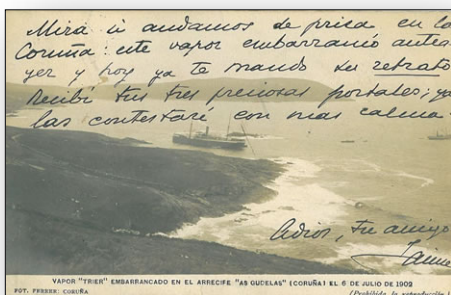 Mira si andamos de prisa en la
Coruña: este vapor embarrancó antea-
yer y hoy ya te mando su retrato
Recibí tus tres preciosas postales; ya
las contestaré con mas calma.
Adios, tu amigo
Jaime
VAPOR "TRIER" EMBARRANCADO EN EL ARRECIFE "AS GUDELAS" (CORUÑA) EL 6 DE JULIO DE 1909
FOT. FERRER: CORUÑA
(Prohibida la reproducción)